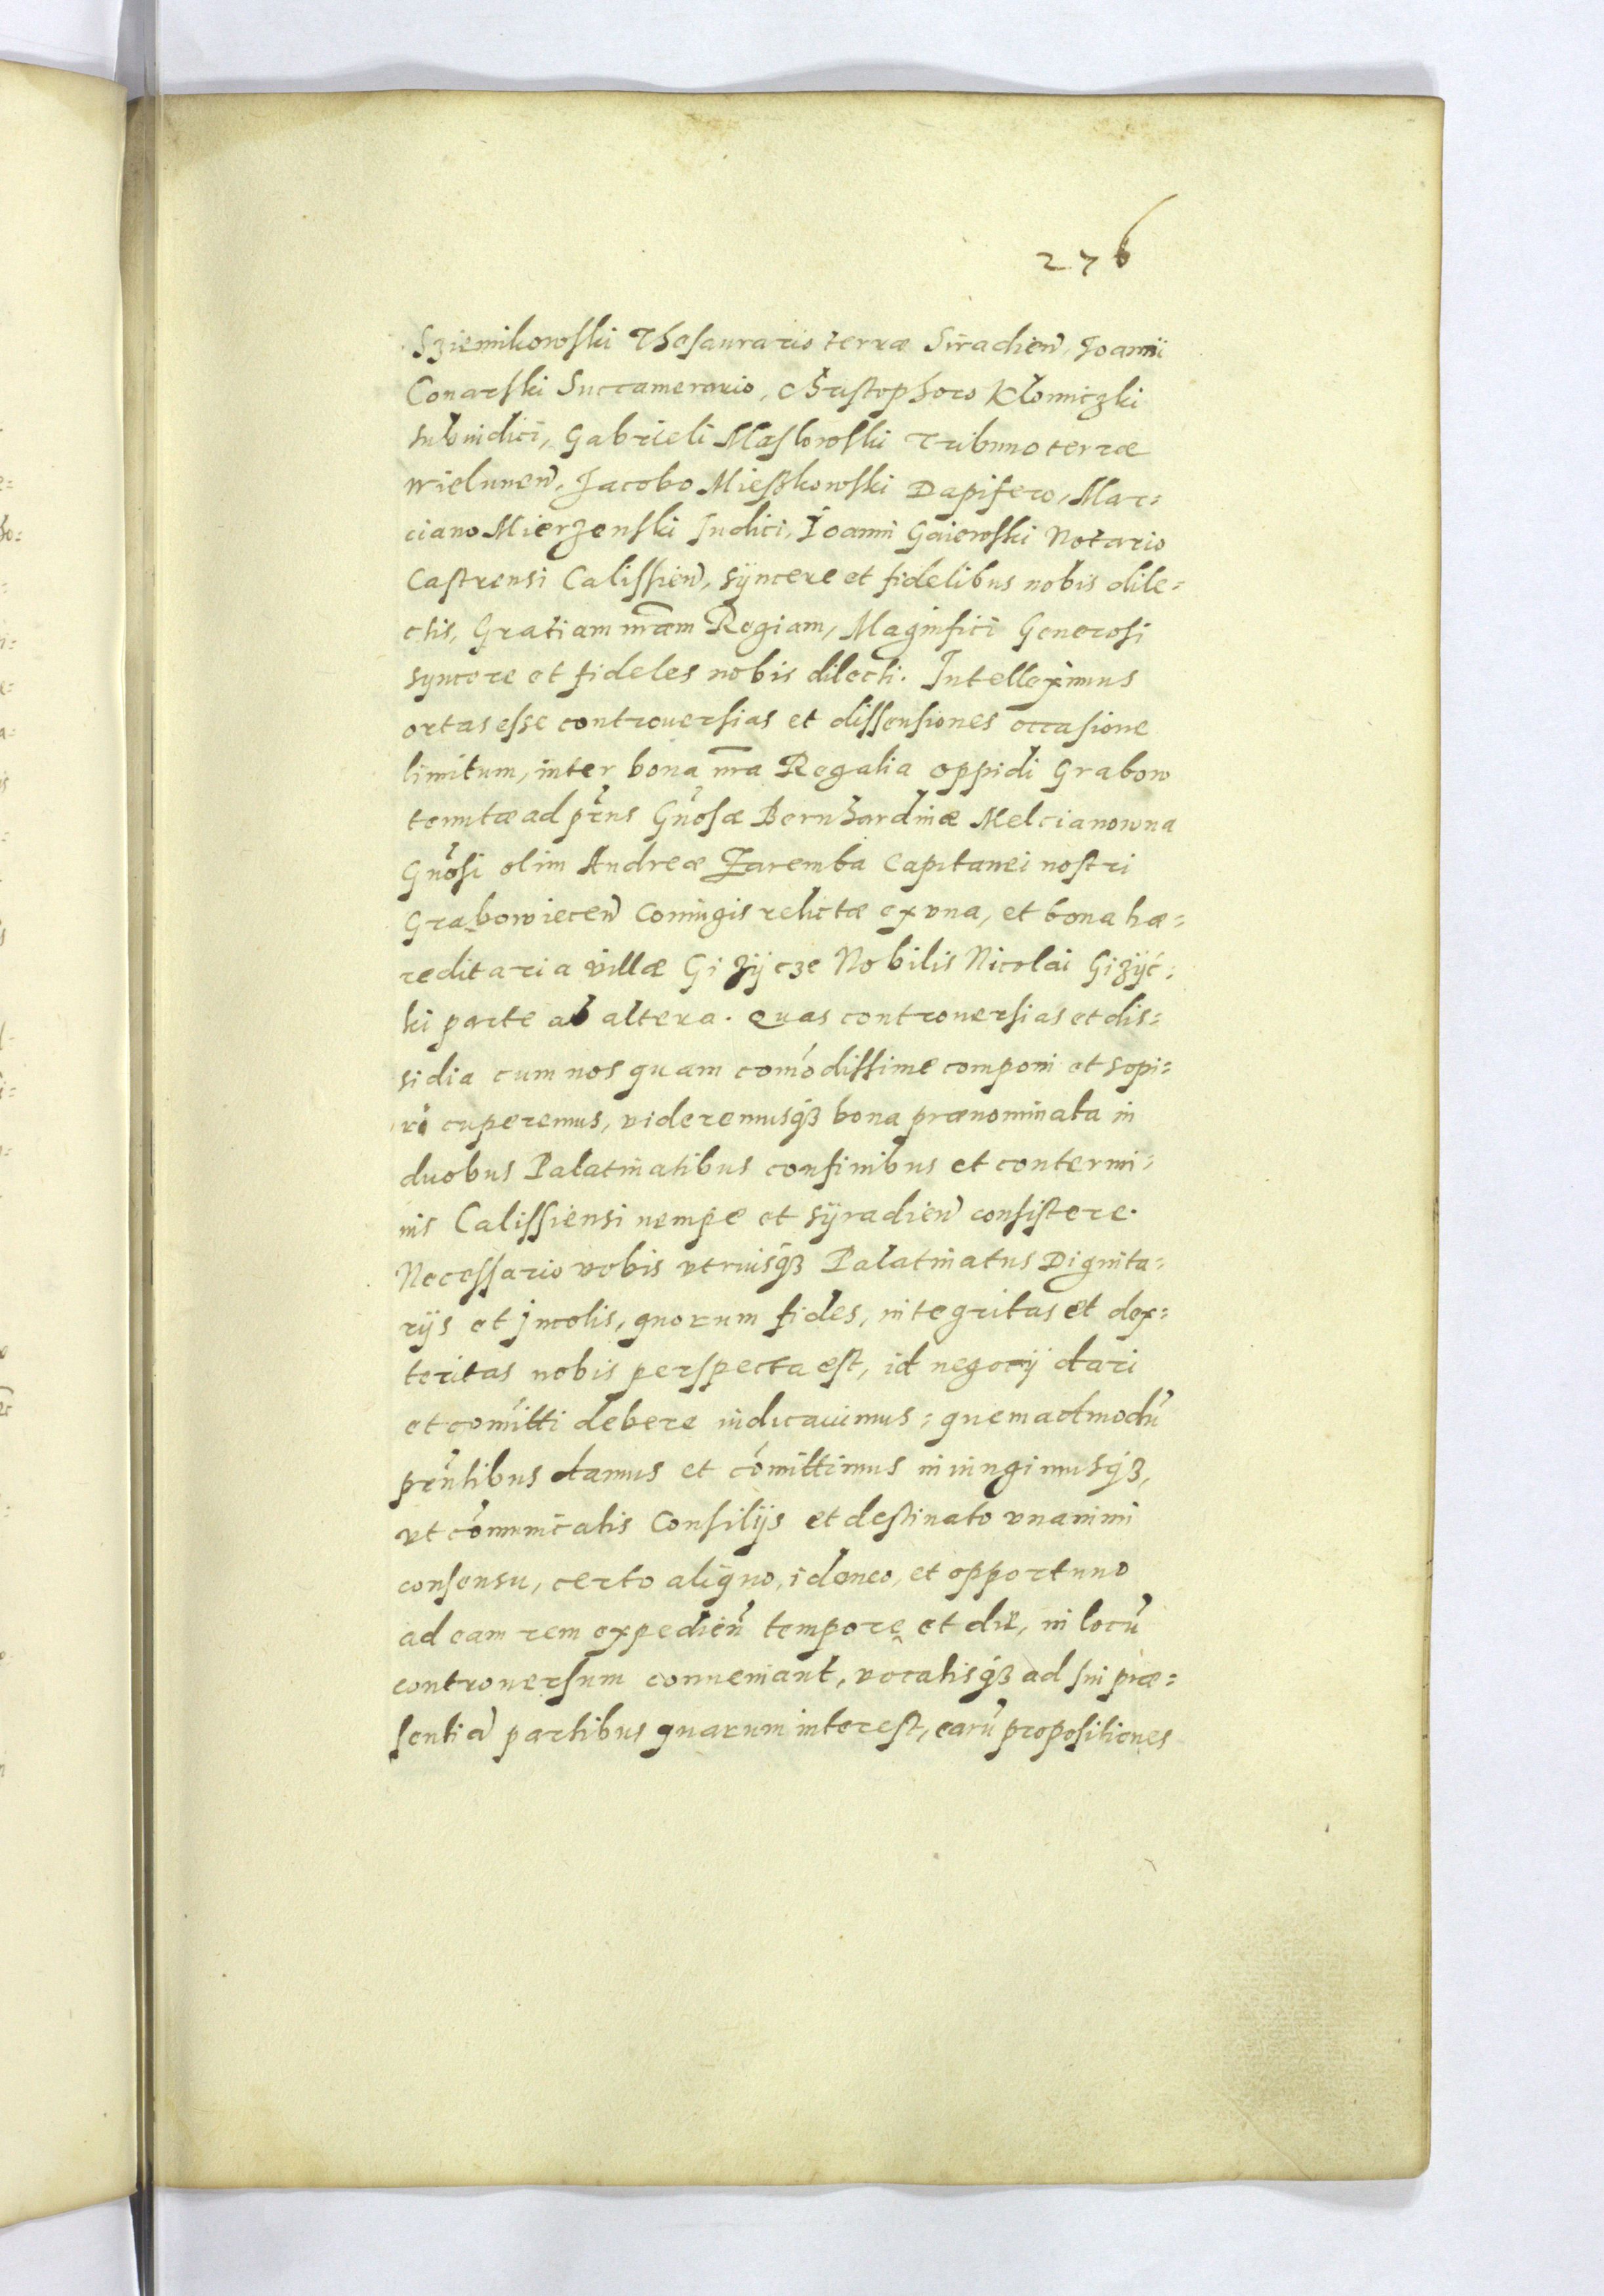 276
Sziemikowski Thesaurario terræ Siradien̄, Joanni
Conarski Succamerario, Christophoro Kłomiczki
Subiudici, Gabrieli Maslowski Tribuno terræ
Wielunen̄, Jacobo Mieszkowski Dapifero, Mar=
ciano Mierzenski Judici, Joanni Gaiewski Notario
Castrensi Calissien̄, syncere et fidelibus nobis dile=
ctis, Gratiam nr̄am Regiam, Magnifici Generosi
syncere et fideles nobis dilecti. Intelleximus
ortas esse controuersias et dissensiones occasione
limitum, inter bona nr̄a Regalia oppidi Grabow
tenutæ ad pr̄ns Gn̄osæ Bernhardinæ Melcianowna
Gn̄osi olim Andreæ Zaremba Capitanei nostri
Grabowiecen̄ Coniugis relictæ ex vna, et bona hæ=
reditaria villæ Giżÿcze Nobilis Nicolai Giżÿc=
ki parte ab altera. Quas controuersias et dis=
sidia cum nos quam com̄odissime componi et sopi=
ri cuperemus, videremusqꝫ bona prænominata in
duobus Palatinatibus confinibus et contermi=
nis Calissiensi nempe et sÿradien̄ consistere.
Necessario vobis vtriusqꝫ Palatinatus Dignita=
rijs et Jncolis, quorum fides, integritas et dex=
teritas nobis perspecta est, id negocij dari
et com̄itti debere iudicauimus: quemadmodū
prn̄tibus damus et com̄ittimus iniungimusqꝫ,
vt com̄unicatis Consilijs et destinato vnanimi
consensu, certo aliquo, idoneo, et opportuno
ad eam rem expedien̄ tempore et die, in locū
controuersum conueniant, vocatisqꝫ ad sui præ=
sentiā partibus quarum interest, earū propositiones